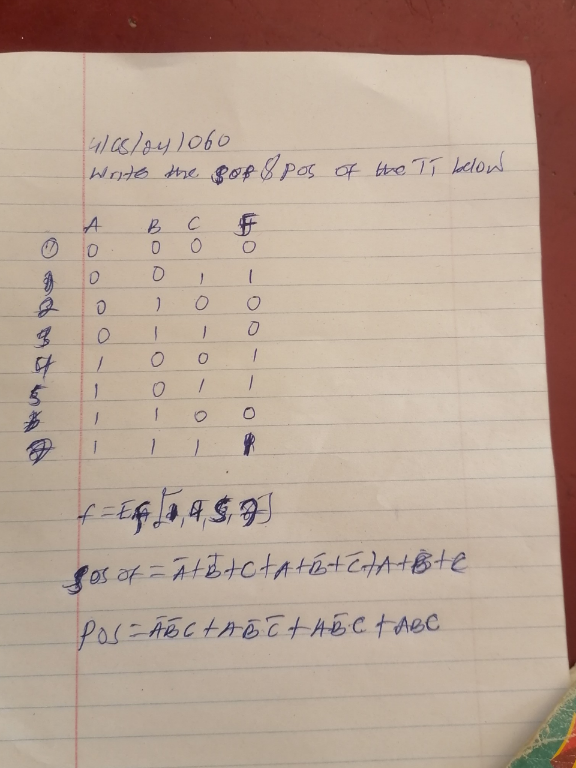 4/CS/24/060
Write the SOP & POS of the TT below
A B C F
0 0 0 0 0
1 0 0 1 1
2 0 1 0 0
3 0 1 1 0
4 1 0 0 1
5 1 0 1 1
6 1 1 0 0
7 1 1 1 1
f = [1, 4, 5, 7]
= A̅+B̅+C+A+B̅+C̅+A+B̅+C
POS = A̅B̅C + AB̅C̅ + AB̅C + ABC